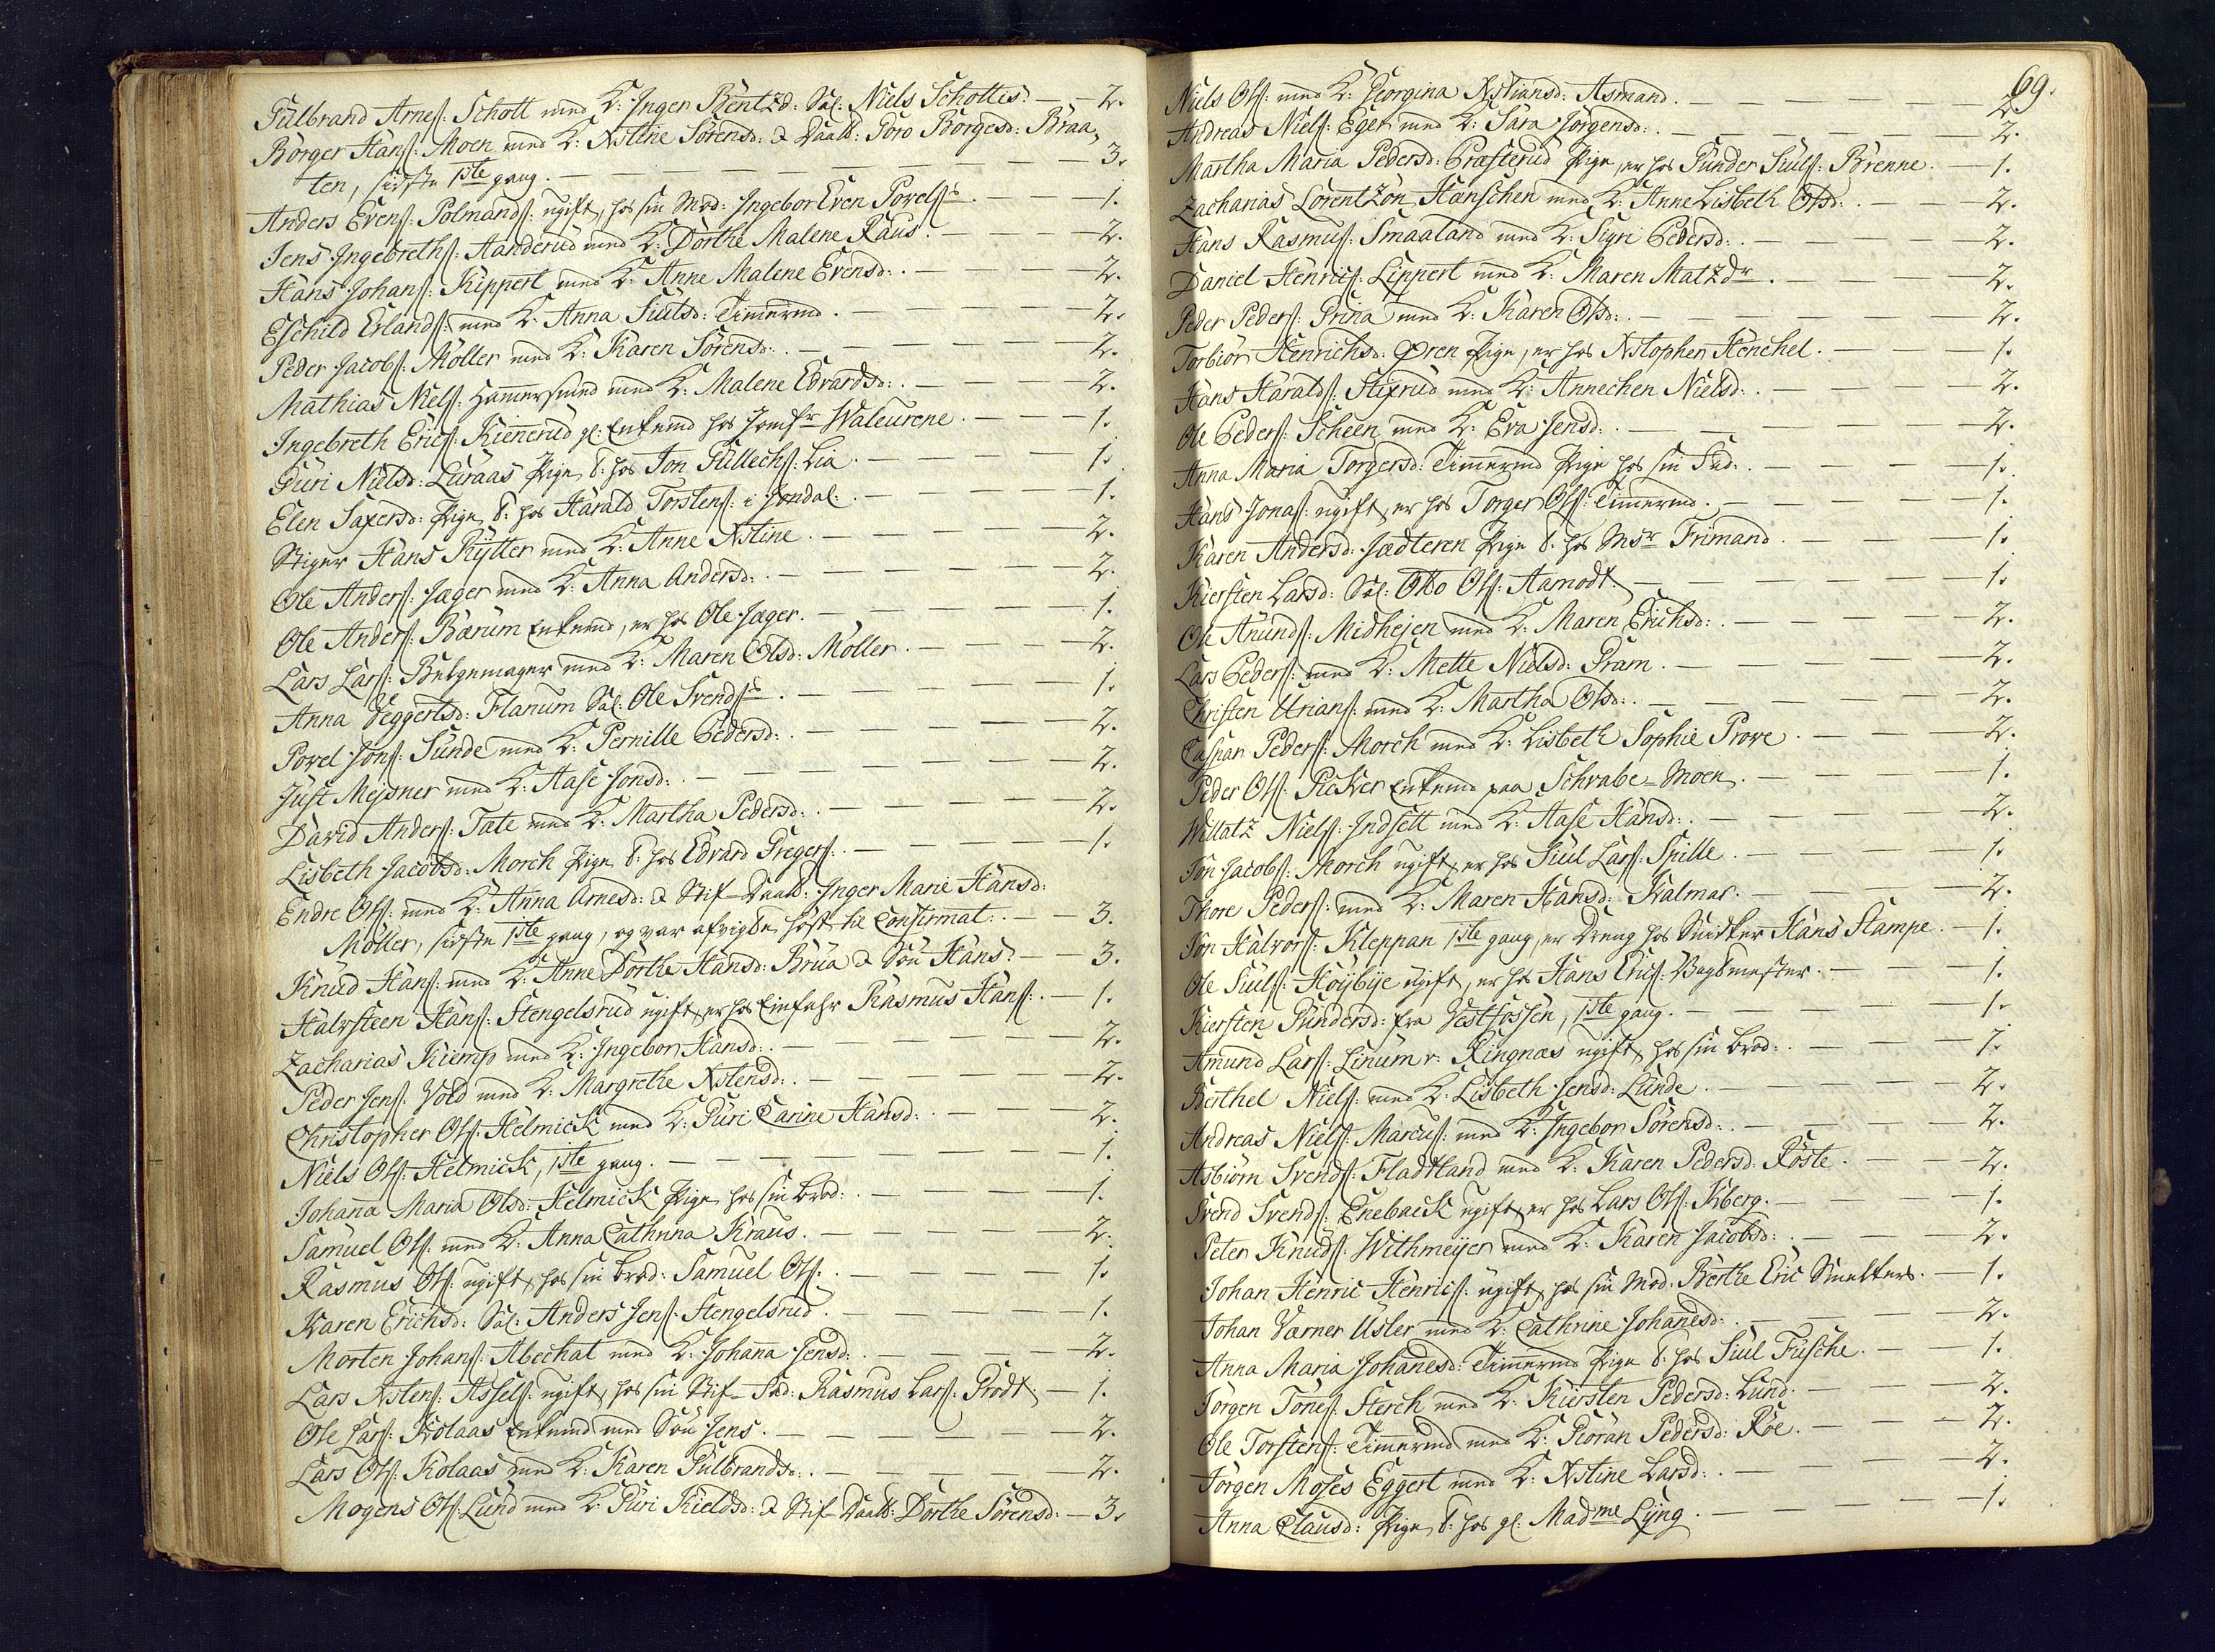 Gulbrand Arnes: Schott med K: Inger Bentzd: Sal: Niels Schottes. — — 2.
Børger Hans: Moen med K: Xstine Sørensd: & Daatt: Goro Børgesd: Braa-
ten, sidste 1ste gang. — — — 3.
Anders Evens: Polmands: ugift, hos sin Mod: Ingebor Even Povels. — 1.
Jens Ingebreths: Aanderud med K: Dorthe Malene Raus. — — 2.
Hans Johans: Kippert med K: Anne Malene Evensd: — — 2.
Eschild Erlands: med K: Anna Juulsd: Timermd. — — 2.
Peder Jacobs: Møller med K: Karen Sørensd: — — 2.
Mathias Niels: Hamersmed med K: Malene Edvardsd: — — 2.
Ingebreth Erics: Kiennerud gl: Enkemd hos Jomfr Waleurene. — — 1.
Guri Nielsd: Luraas Pige, T: hos Jon Gullechs: Lia. — — 1.
Elen Saxersd: Pige, T: hos Harald Torstens: i Jondal: — — 1.
Stiger Hans Rytter med K: Anne Xstine. — — 2.
Ole Anders: Jæger med K: Anna Andersd: — — 2.
Ole Anders: Bærum Enkemd, er hos Ole Jæger. — — 1.
Lars Lars: Belgemager med K: Maren Olsd: Møller. — — 2.
Anna Veggertsd: Flanum Sal: Ole Svends. — — 1.
Povel Jons: Sunde med K: Pernille Pedersd: — — 2.
Just Meisner med K: Aase Jonsd: — — 2.
David Anders: Tate med K: Martha Pedersd: — — 2.
Lisbeth Jacobsd: Morch Pige, T: hos Edvard Gregers: — — 1.
Endre Ols: med K: Anna Arnesd: & Stif-Daatt: Inger Marie Hansd:
Møller, sidste 1ste gang, og var afvigte høst til Confirmat: — — 3.
Knud Hans: med K: Anne Dorthe Hansd: Brua & Søn Hans. — — 3.
Halvsteen Hans: Stengelsrud ugift, er hos Einfahr Rasmus Hans: — 1.
Zacharias Kiemp med K: Ingebor Hansd: — — 2.
Peder Jens: Vold med K: Margrethe Xstensd: — — 2.
Christopher Ols: Helmick med K: Guri Carine Hansd: — — 2.
Niels Ols: Helmick, 1ste gang. — — 1.
Johanna Maria Olsd: Helmick Pige, hos sin brod: — — 1.
Samuel Ols: med K: Anna Cathrina Kraus. — — 2.
Rasmus Ols: ugift, hos sin brod: Samuel Ols: — — 1.
Karen Erichsd: Sal: Anders Jens: Stengelsrud. — — 1.
Morten Johans: Abechat med K: Johanna Jensd: — — 2.
Lars Xstens: Assels: ugift, hos sin Stif-Fad: Rasmus Lars: Grodt. — 1.
Ole Lars: Kolaas Enkemd med Søn Jens. — — 2.
Lars Ols: Kolaas med K: Karen Gulbrandsd: — — 2.
Mogens Ols: Lund med K: Guri Kieldsd: & Stif-Daatt: Dorthe Sørensd: — 3.
69.
Niels Ols: med K: Georgina Xstiansd: Asmand. — — 2.
Andreas Niels: Eger med K: Sara Jørgensd: — — 2.
Martha Maria Pedersd: Præsterud Pige, er hos Gunder Juuls: Brenne. — 1.
Zacharias Lorentzøn Hanschen med K: Anne Lisbeth Olsd: — — 2.
Hans Rasmus: Smaaland med K: Sigri Pedersd: — — 2.
Daniel Henrics: Lippert med K: Maren Matzdr. — — 2.
Peder Peders: Grina med K: Karen Olsd: — — 2.
Torbiør Henrichsd: Øren Pige, er hos Xstophen Henchel. — — 1.
Hans Haralds: Stixrud med K: Annechen Nielsd: — — 2.
Ole Peders: Scheen med K: Eva Jensd: — — 2.
Anna Maria Torgersd: Timermd Pige hos sin Fad: — — 1.
Hans Jonas: ugift, er hos Torger Ols: Timermd. — — 1.
Karen Andersd: Jædteren Pige T: hos Msr Frimand. — — 1.
Kiersten Larsd: Sal: Otto Ols: Aamodt. — — 1.
Ole Anunds: Midhejen med K: Maren Erichsd: — — 2.
Lars Peders: med K: Mette Nielsd: Gram. — — 2.
Christen Urians: med K: Martha Olsd: — — 2.
Caspar Peders: Morch med K: Lisbeth Sophie Prove. — — 2.
Peder Ols: Picker Enkemd paa Schrabe-Moen. — — 1.
Willatz Niels: Indsett med K: Aase Hansd: — — 2.
Jon Jacobs: Morch ugift, er hos Juul Lars: Spille. — — 1.
Thore Peders: med K: Maren Hansd: Kalmar. — — 2.
Jon Halvors: Kleppan 1ste gang, er Dreng hos Snidker Hans Stampe. — 1.
Ole Juuls: Høybye ugift, er hos Hans Erics: Vagtmester. — — 1.
Kiersten Gundersd: fra Vestfossen, 1ste gang. — — 1.
Amund Lars: Linum v: Ringnæs ugift, hos sin brod: — — 1.
Berthel Niels: med K: Lisbeth Jensd: Lunde. — — 2.
Andreas Niels: Marcus: med K: Ingebor Sørensd: — — 2.
Asbiørn Svends: Fladtland med K: Karen Pedersd: Røste. — — 2.
Svend Svends: Enebach ugift, er hos Lars Ols: Kiberg. — — 1.
Peter Knuds: Withmeÿer med K: Karen Jacobsd: — — 2.
Johan Henric Henrics: ugift, hos sin Mod: Berthe Eric Smelters. — 1.
Johan Værner Usler med K: Cathrine Johanesd: — — 2.
Anna Maria Johanesd: Timermd Pige T: hos Juul Fusche. — — 1.
Jørgen Tønes: Sterch med K: Kiersten Pedersd: Lund. — — 2.
Ole Torstens: Timermd med K: Giøran Pedersd: Røe. — — 2.
Jørgen Moses Eggert med K: Xstine Larsd: — — 2.
Anna Clausd: Pige, T: hos gl: Madme Lÿng. — — 1.